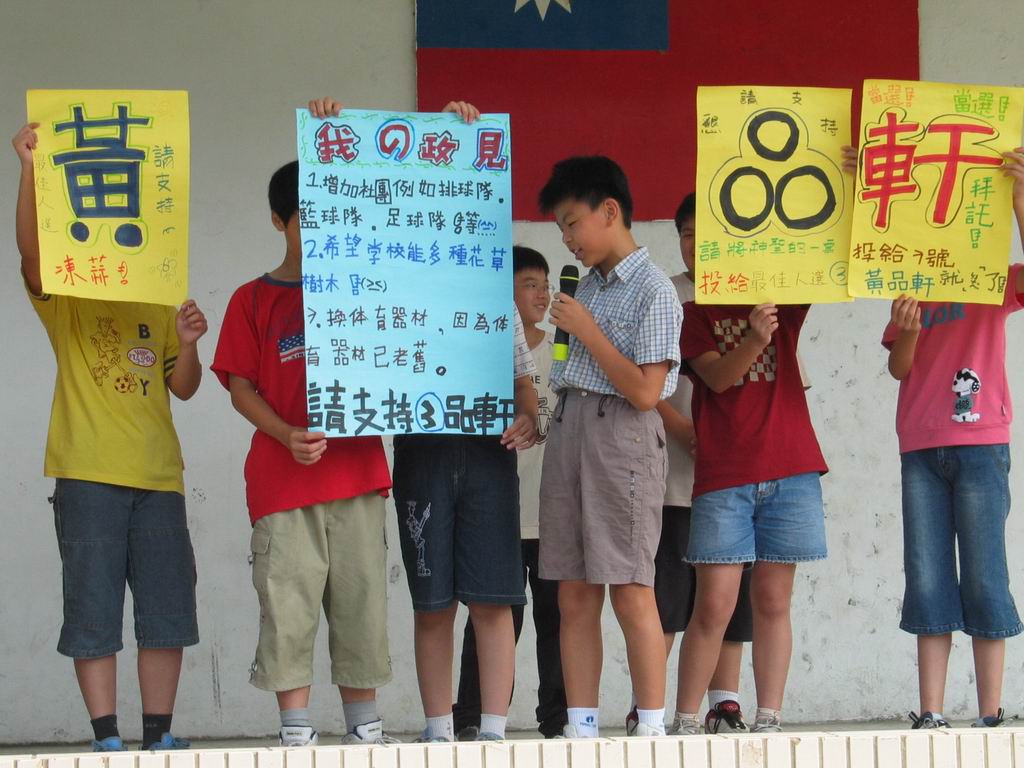 黃
請支持
最佳人選
凍蒜!
B
Y
我の政見
1.增加社團例如排球隊.
籃球隊.足球隊 等(^^)
2.希望學校能多種花草
樹木 (≥≤)
3.換体育器材,因為体
育器材已老舊。
請支持③品軒
請支
懇
持
品
請將神聖的一票
投給最佳人選③
當選!
當選!
軒
拜託!
投給3號
黃品軒就對了